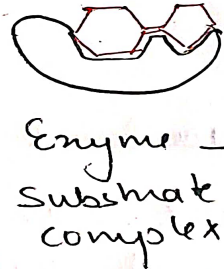 Enzyme -
substrate
complex